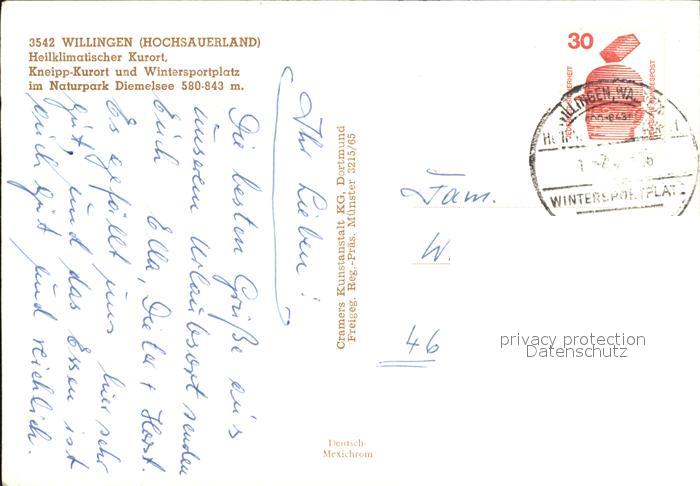 3542 WILLINGEN (HOCHSAUERLAND)
Heilklimatischer Kurort,
Kneipp-Kurort und Wintersportplatz
im Naturpark Diemelsee 580-843 m.
Ihr Lieben!
Die besten Grüße aus
unserem Urlaubsort senden
Euch Ella, Dieter + Horst.
Es gefällt uns hier sehr
gut, und das Essen ist
auch gut und reichlich.
Cramers Kunstanstalt KG, Dortmund
Freigeg. Reg.-Präs. Münster 3215/65
Deutsch-
Mexichrom
30
DEUTSCHE BUNDESPOST
WILLINGEN, WA
WINTERSPORTPLATZ
Fam.
W.
46
privacy protection
Datenschutz